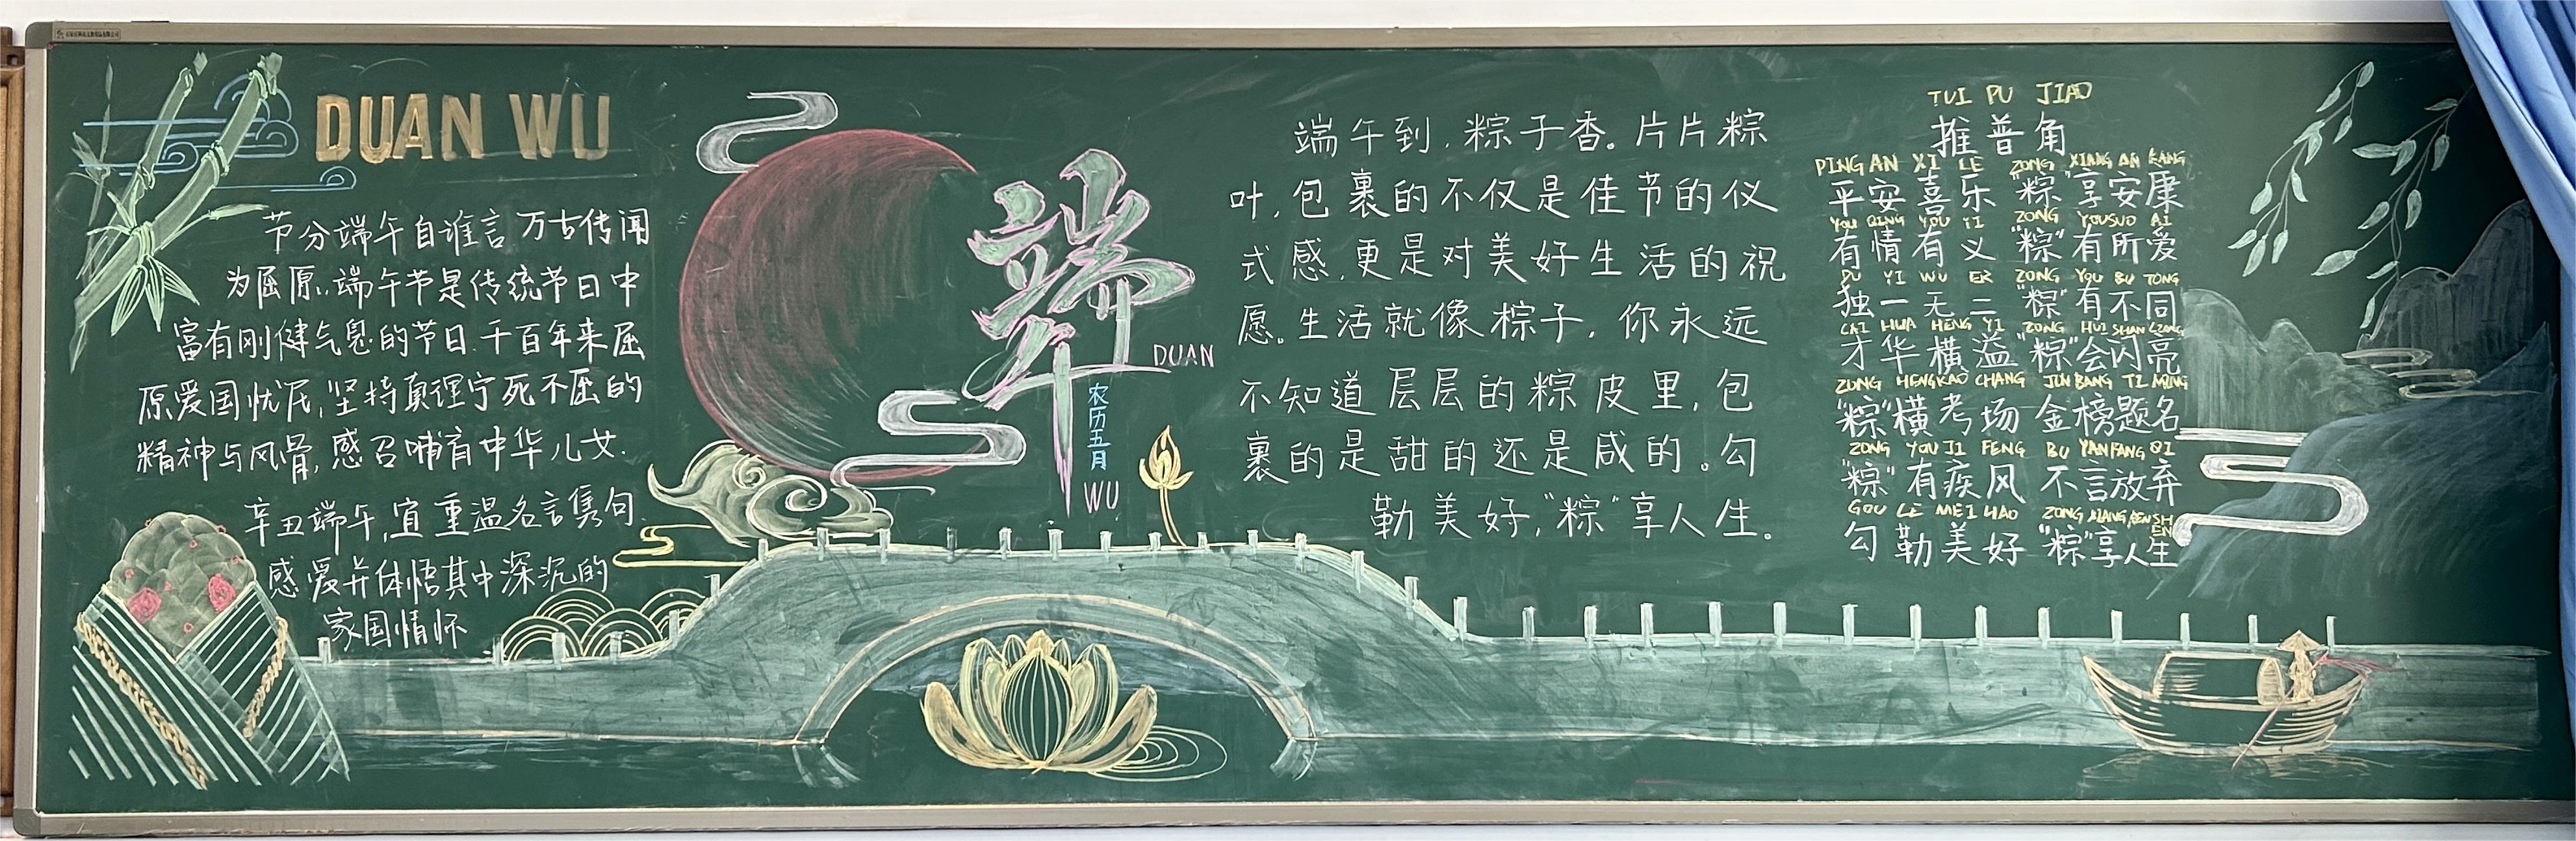 DUAN WU
节分端午自谁言 万古传闻
为屈原.端午节是传统节日中
富有刚健气息的节日.千百年来屈
原爱国忧民,坚持真理宁死不屈的
精神与风骨,感召哺育中华儿女.
辛丑端午,宜重温名言隽句.
感爱并体悟其中深沉的
家国情怀
端
DUAN
农历五月
WU
端午到,粽子香。片片粽
叶,包裹的不仅是佳节的仪
式感,更是对美好生活的祝
愿。生活就像棕子,你永远
不知道层层的粽皮里,包
裹的是甜的还是咸的。勾
勒美好,"粽"享人生。
TUI PU JIAO
推普角
PING AN XI LE ZONG XIANG AN KANG
平安喜乐"粽"享安康
YOU QING YOU YI ZONG YOUSUO AI
有情有义"粽"有所爱
DU YI WU ER ZONG YOU BU TONG
独一无二"粽"有不同
CAI HUA HENG YI ZONG HUI SHAN LIANG
才华横溢"粽"会闪亮
ZONG HENGKAO CHANG JIN BANG TI MING
"粽"横考场 金榜题名
ZONG YOU JI FENG BU YANFANG QI
"粽"有疾风 不言放弃
GOU LE MEI HAO ZONG XIANG REN SHEN
勾勒美好"粽"享人生